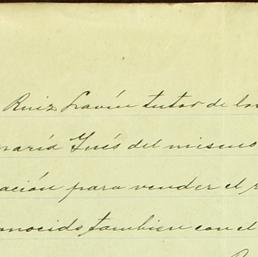 Ruiz Gavín tutor de los
María Ynés del mismo
ación para vender el r
onocido tambien con el